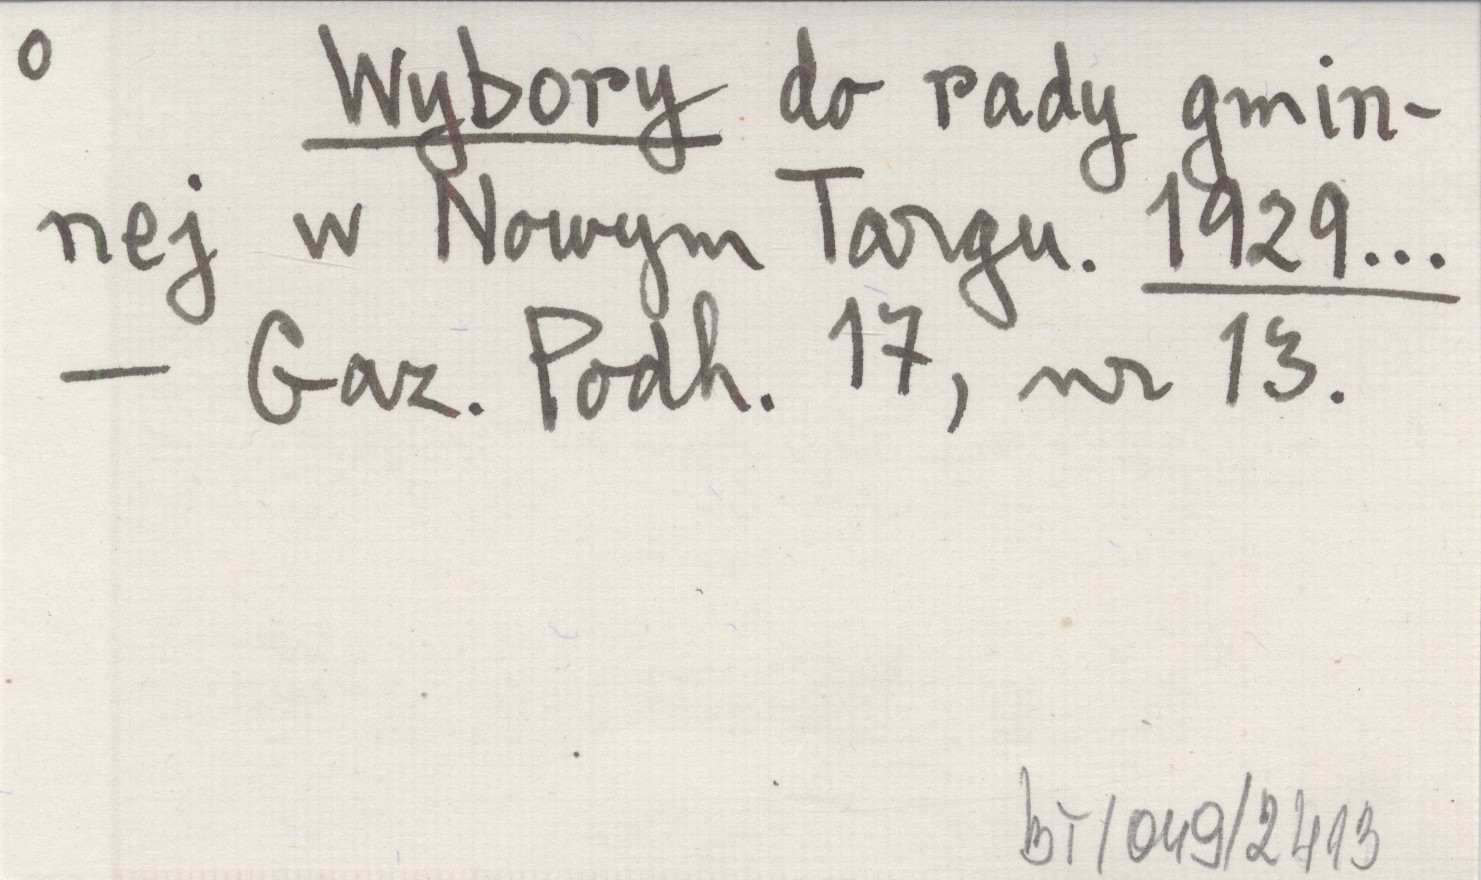 o Wybory do rady gmin-
nej w Nowym Targu. 1929...
— Gaz. Podh. 17, nr 13.
BT/049/2413